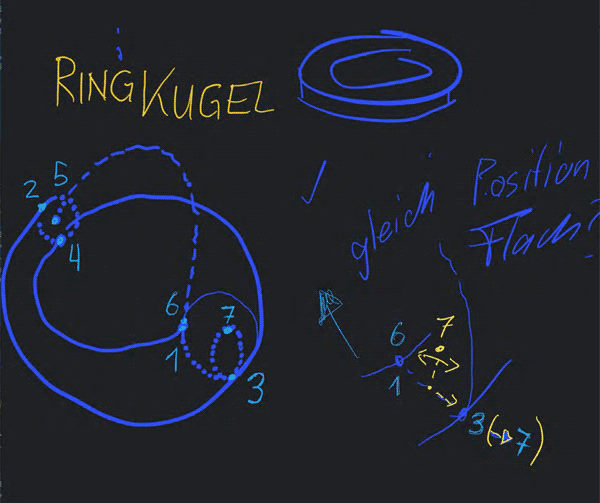 RINGKUGEL
gleich Position
Flach?
2 5
4
6 7
1 3
6 7
1
3 (→ 7)